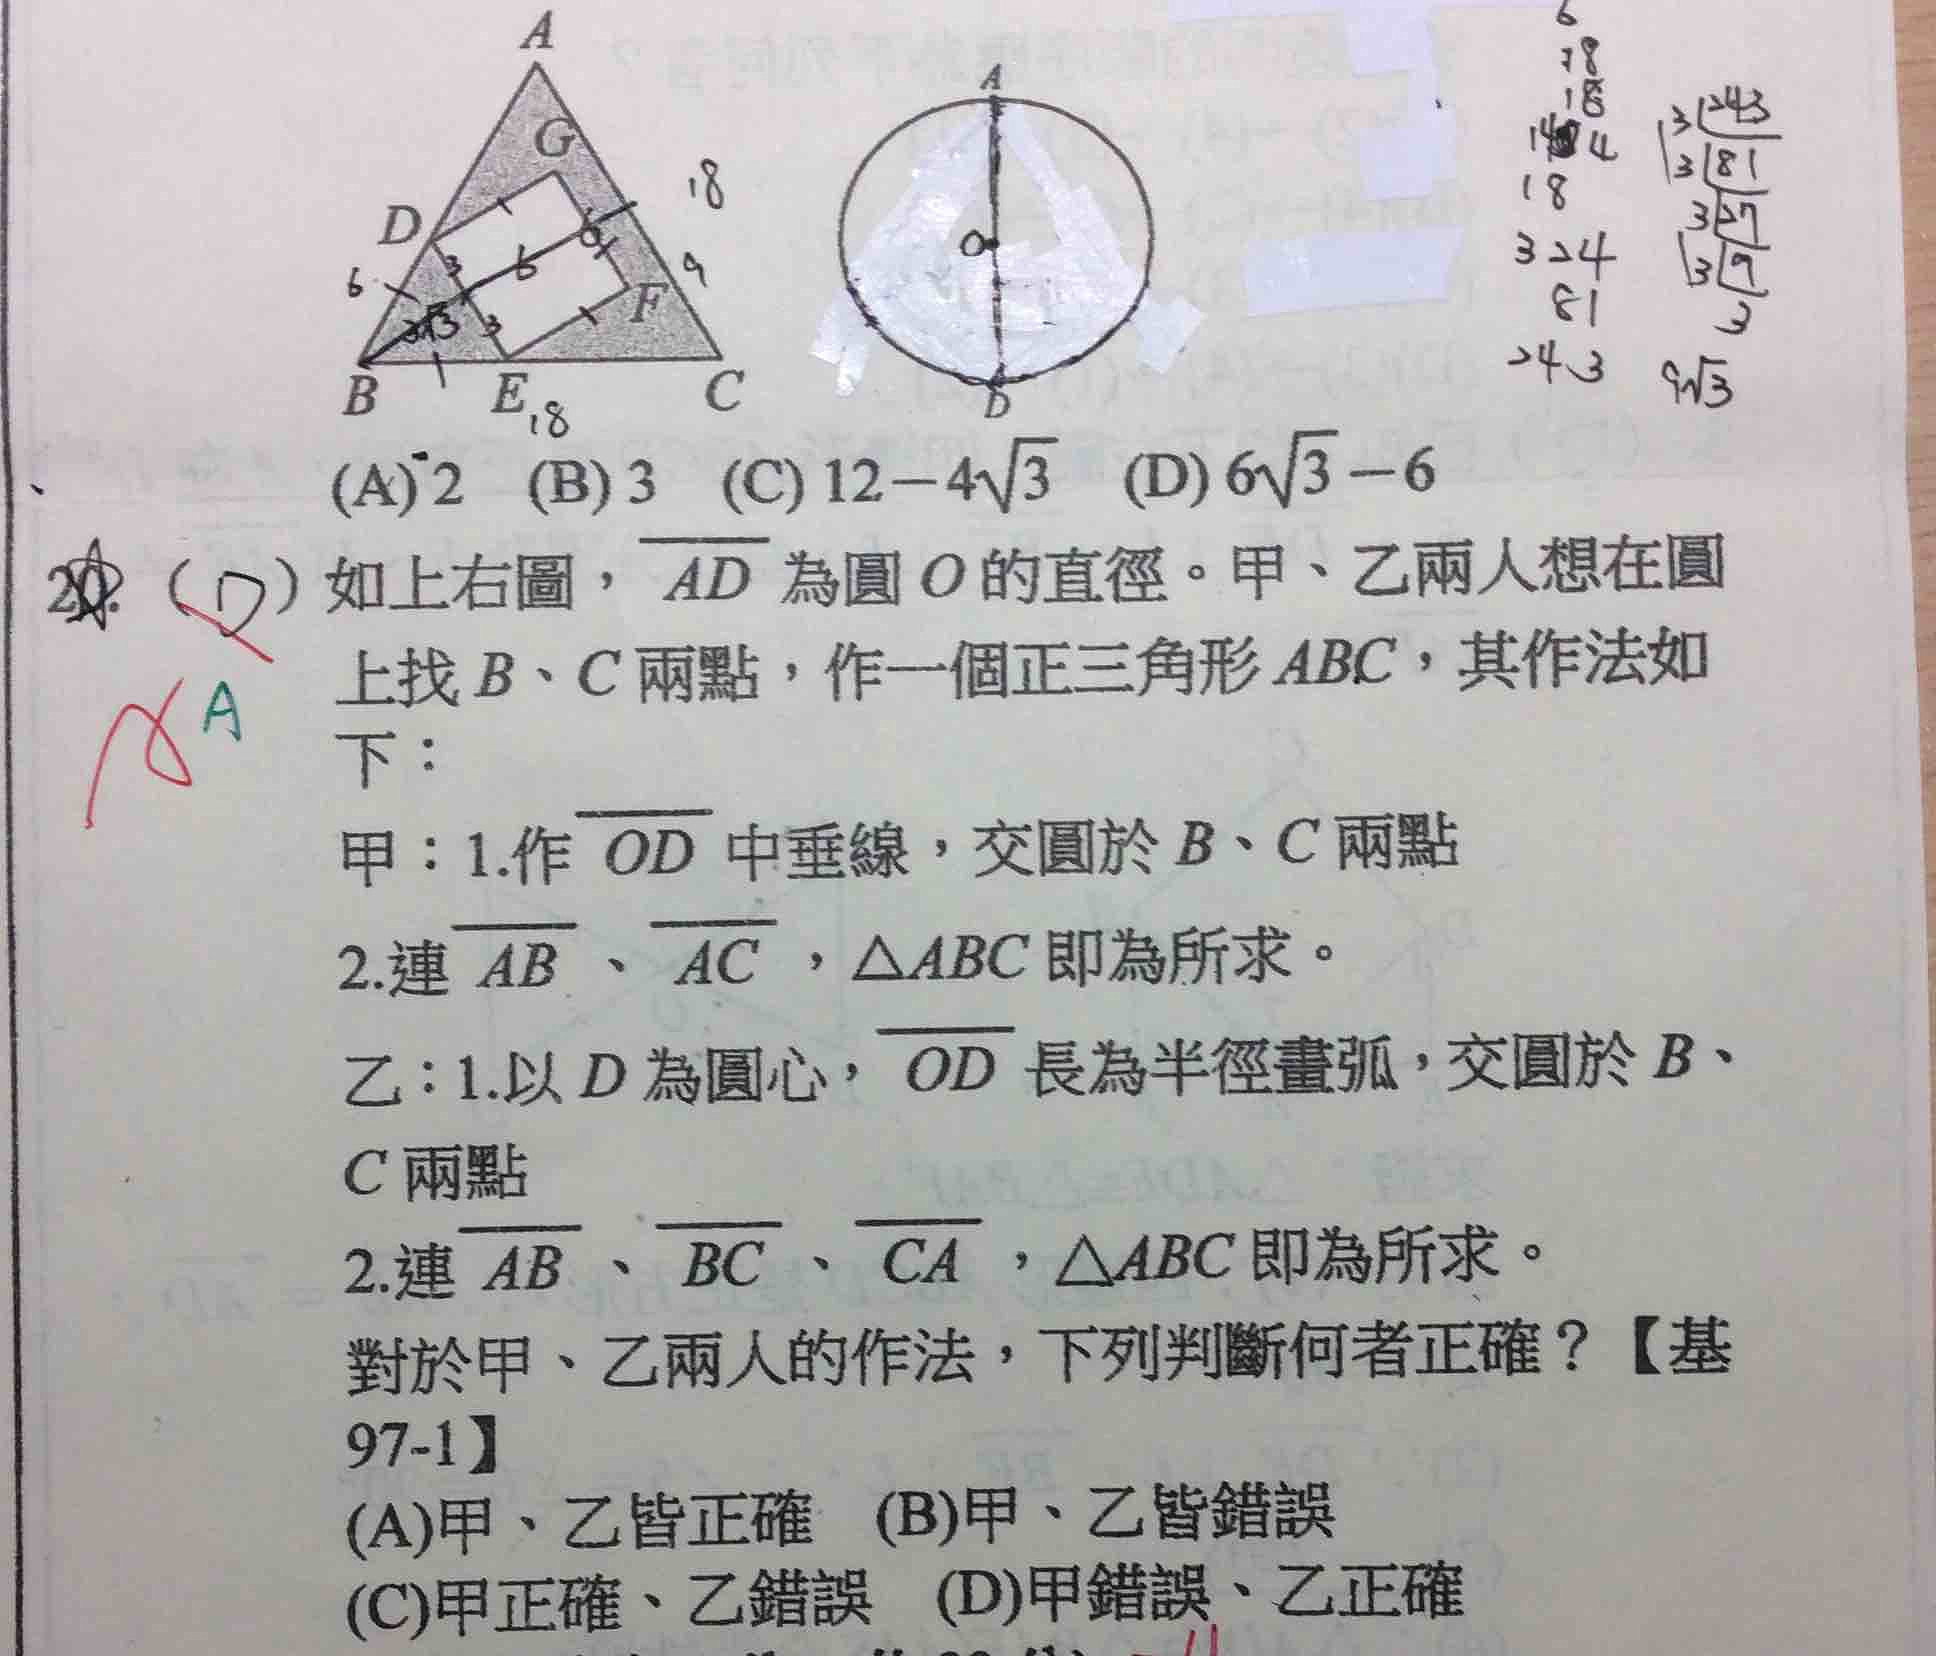 A
G
D
F
B
E
C
6
3
6
6
3√3
3
18
9
18
A
O
D
6
18
18
144
18
324
81
243
3 243
3 81
3 27
3 9
3
9√3
(A) 2 (B) 3 (C) 12－4√3 (D) 6√3－6
20. (D) 如上右圖，AD 為圓 O 的直徑。甲、乙兩人想在圓
上找 B、C 兩點，作一個正三角形 ABC，其作法如
A
下：
甲：1.作 OD 中垂線，交圓於 B、C 兩點
2.連 AB 、 AC ，△ABC 即為所求。
乙：1.以 D 為圓心， OD 長為半徑畫弧，交圓於 B、
C 兩點
2.連 AB 、 BC 、 CA ，△ABC 即為所求。
對於甲、乙兩人的作法，下列判斷何者正確？【基
97-1】
(A)甲、乙皆正確 (B)甲、乙皆錯誤
(C)甲正確、乙錯誤 (D)甲錯誤、乙正確